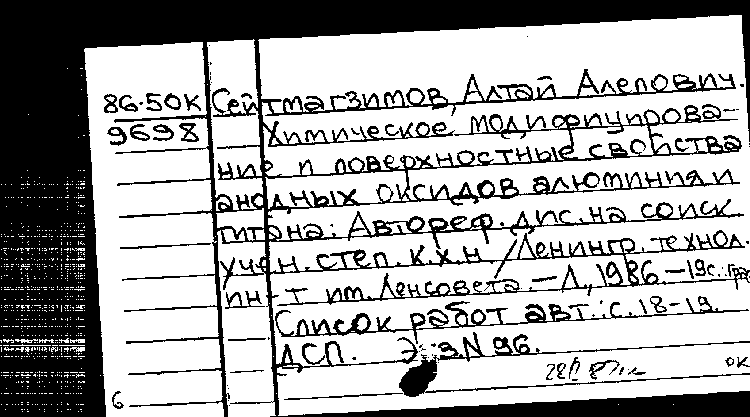 86-50К Сейтмагзимов, Алтай Алепович.
9698 Химическое модифицирова-
ние и поверхностные свойства
анодных оксидов алюминия и
титана: Автореф. дис. на соиск
учен. степ. к.х.н. / Ленингр. технол.
ин-т им. Ленсовета. – Л., 1986. – 19с.
Список работ авт.: с. 18-19.
ДСП. Э N 96.
ОК
6